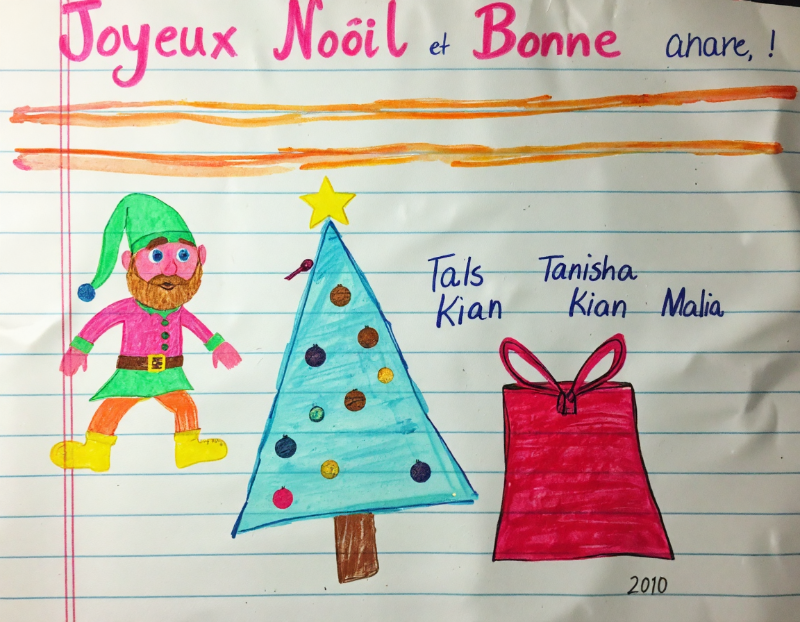 Joyeux Noôil et Bonne anare, !
Tals Tanisha
Kian Kian Malia
2010